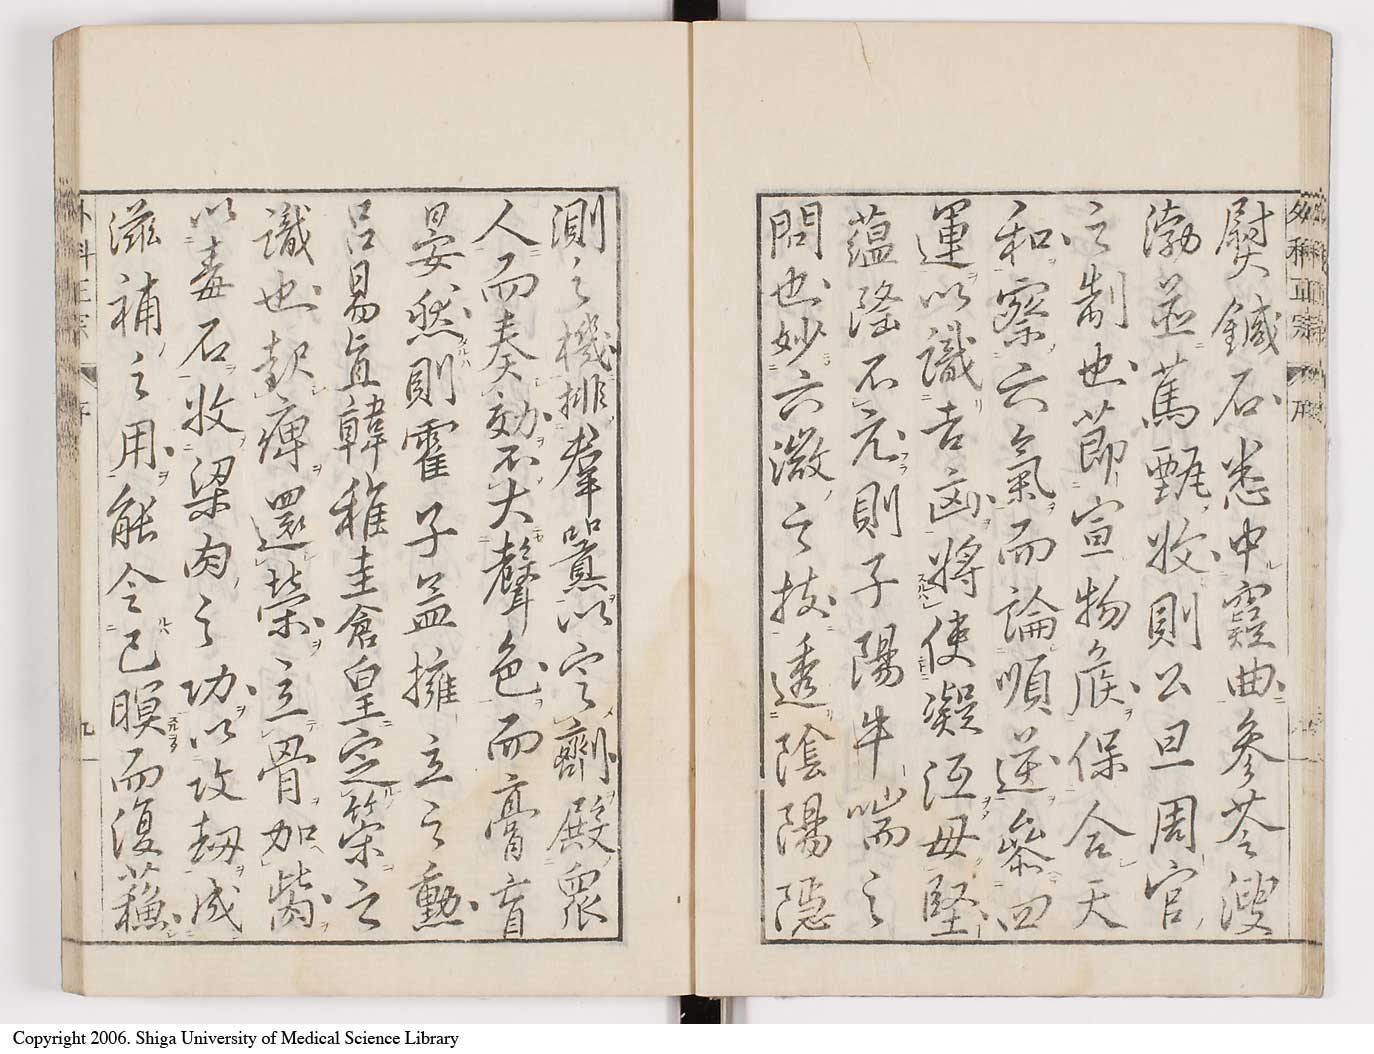 熨鍼石悉中窾曲參苓溲
渤並蔦甄收則公旦周官
之制也節宣物候保合天
和察六氣而論順逆參四
運以識吉凶將使凝沍毋堅
蘊隆不亢則子陽牛喘之
問也妙六微之技透陰陽隱
測之機排羣囂以定劑殿衆
人而奏効不大聲色而膏肓
晏然則霍子孟擁立之勳
呂易直韓稚圭倉皇定策之
識也起痺還榮立骨加齒
以毒石收粱肉之功以攻劫成
滋補之用能令已瞑而復蘓
外科正宗 序 九
Copyright 2006. Shiga University of Medical Science Library